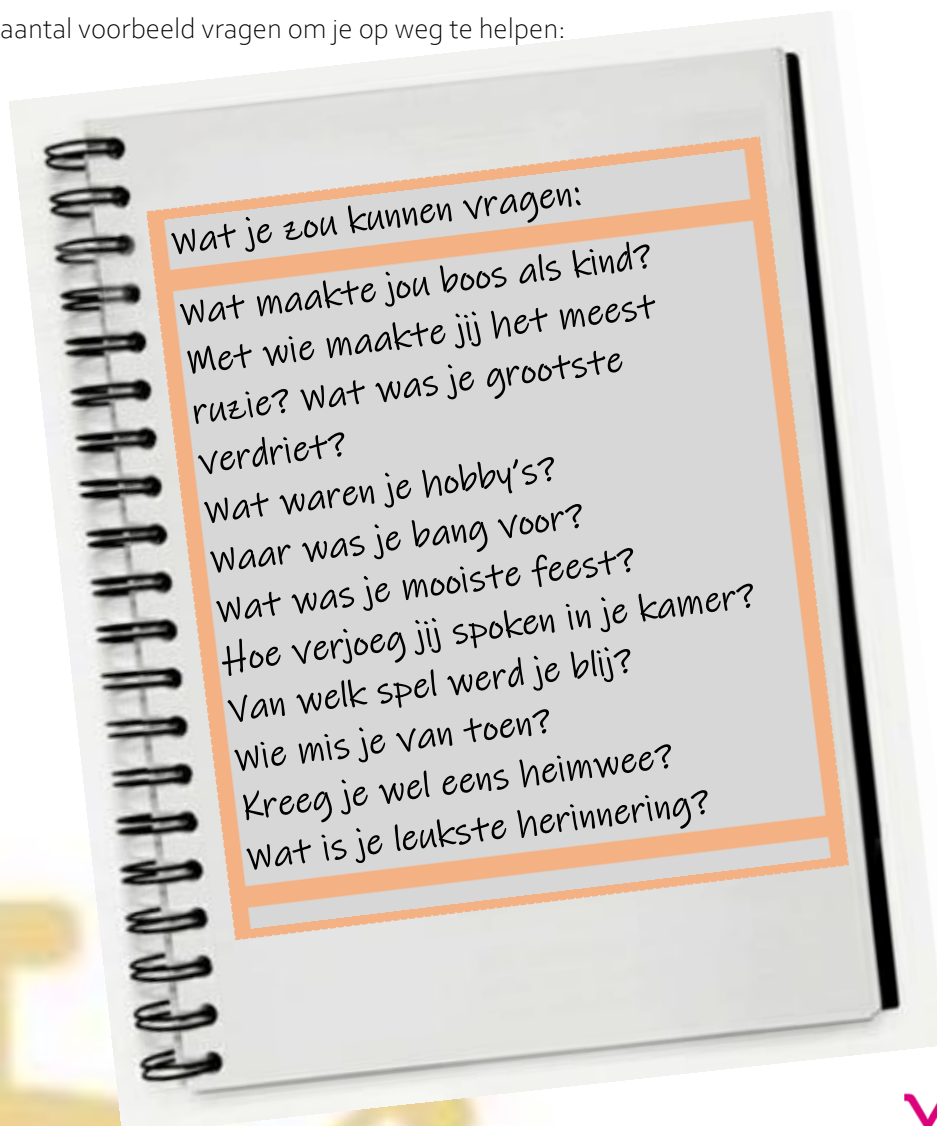 aantal voorbeeld vragen om je op weg te helpen:
Wat je zou kunnen vragen:
Wat maakte jou boos als kind?
Met wie maakte jij het meest
ruzie? Wat was je grootste
verdriet?
Wat waren je hobby's?
Waar was je bang voor?
Wat was je mooiste feest?
Hoe verjoeg jij spoken in je kamer?
Van welk spel werd je blij?
Wie mis je van toen?
Kreeg je wel eens heimwee?
Wat is je leukste herinnering?